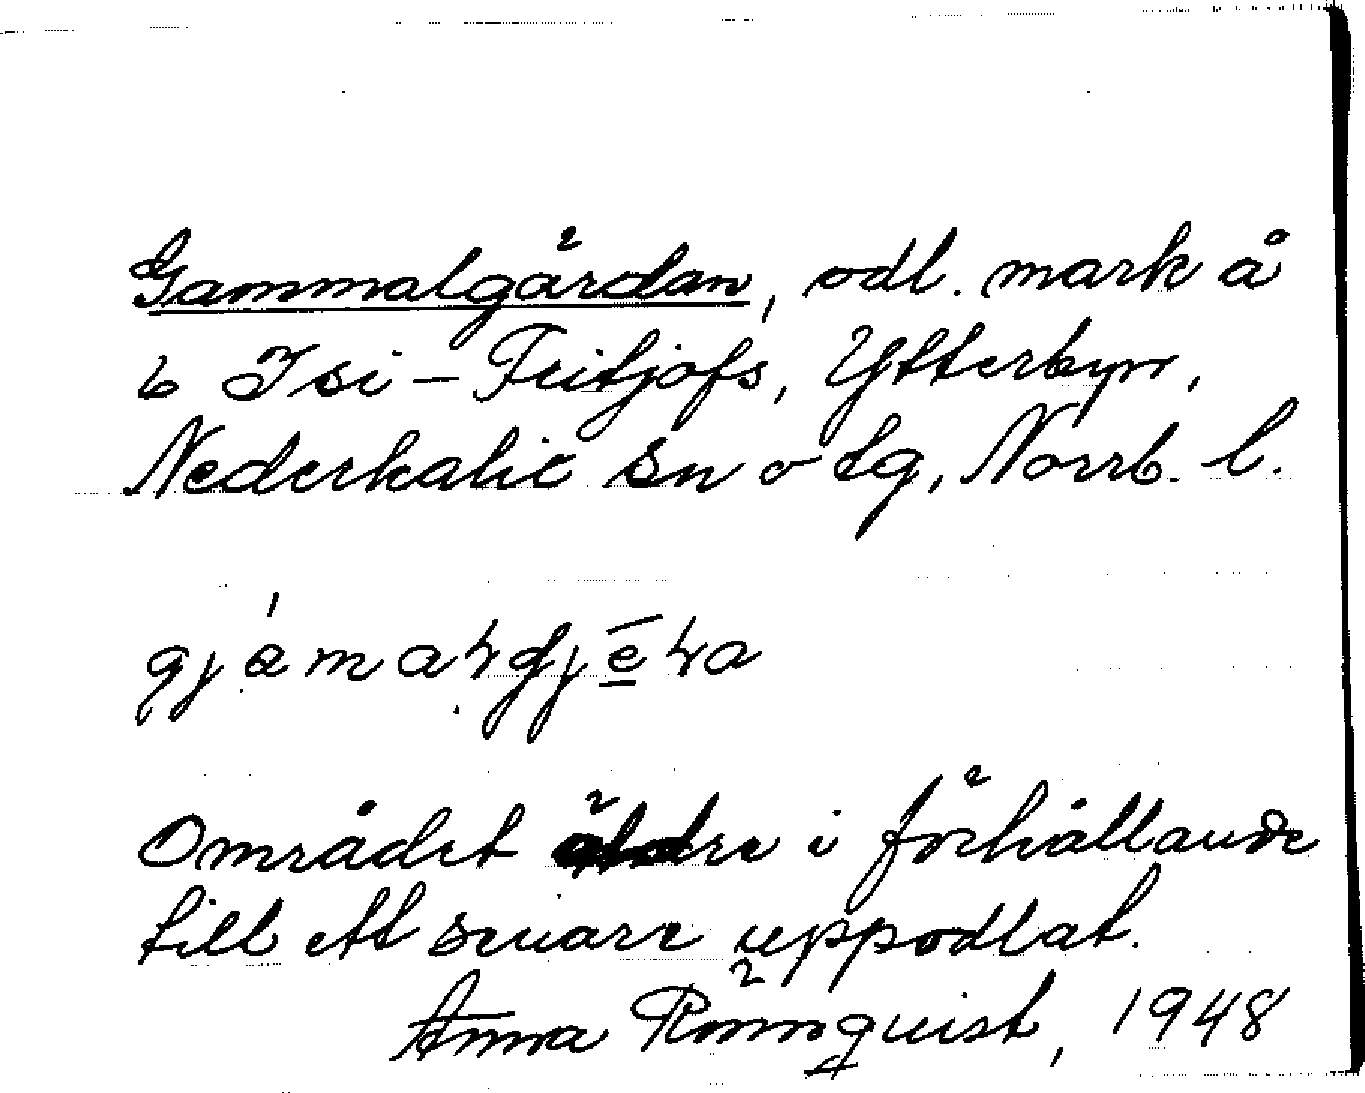 Gammalgårdan, odl. mark å
6 Isi-Fritjofs, Ytterbyn,
Nederkalix sn o tg, Norrb. l.
Området äldre i förhållande
till ett senare uppodlat.
Anna Rönnquist, 1948